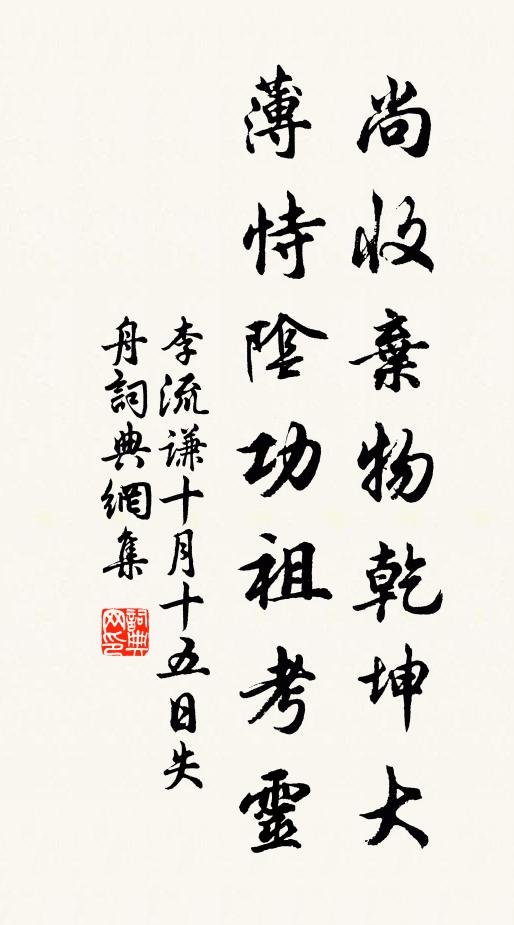 尚收棄物乾坤大
薄恃陰功祖考靈
李流謙十月十五日失
舟詞典網集
詞典
网印